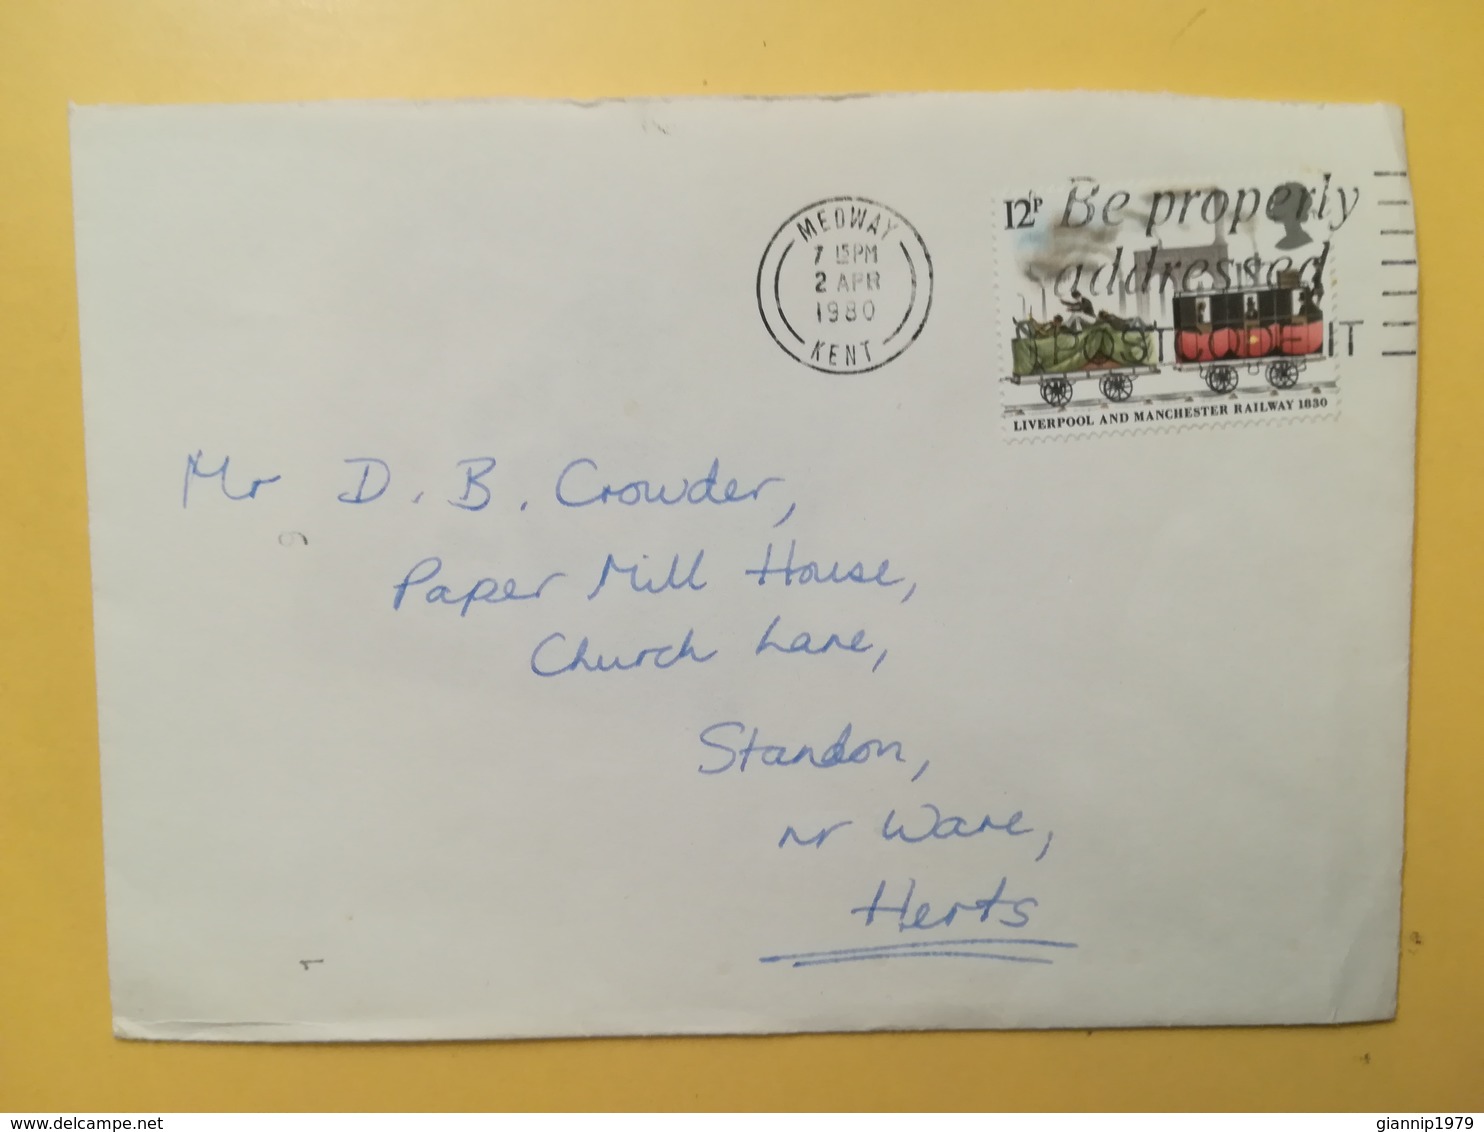 MEDWAY
7 15PM
2 APR
1980
KENT
12P
Be properly
addressed
POSTCODE IT
LIVERPOOL AND MANCHESTER RAILWAY 1830
Mr D. B. Crowder,
Paper Mill House,
Church Lane,
Standon,
nr Ware,
Herts
delcampe.net
giannip1979